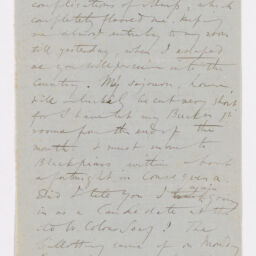 complications of things, which
completely floored me, keeping
me almost entirely to my room
till yesterday, when I
as you will perceive into the
country. My sojourn, however,
will be cut very short
for I have let my
rooms for the end of the
month & I must return to
Blackfriars within about
a fortnight in consequence
Did I tell you I again going
in as a Candidate at the
Col Soc? The
Balloting came off on Monday